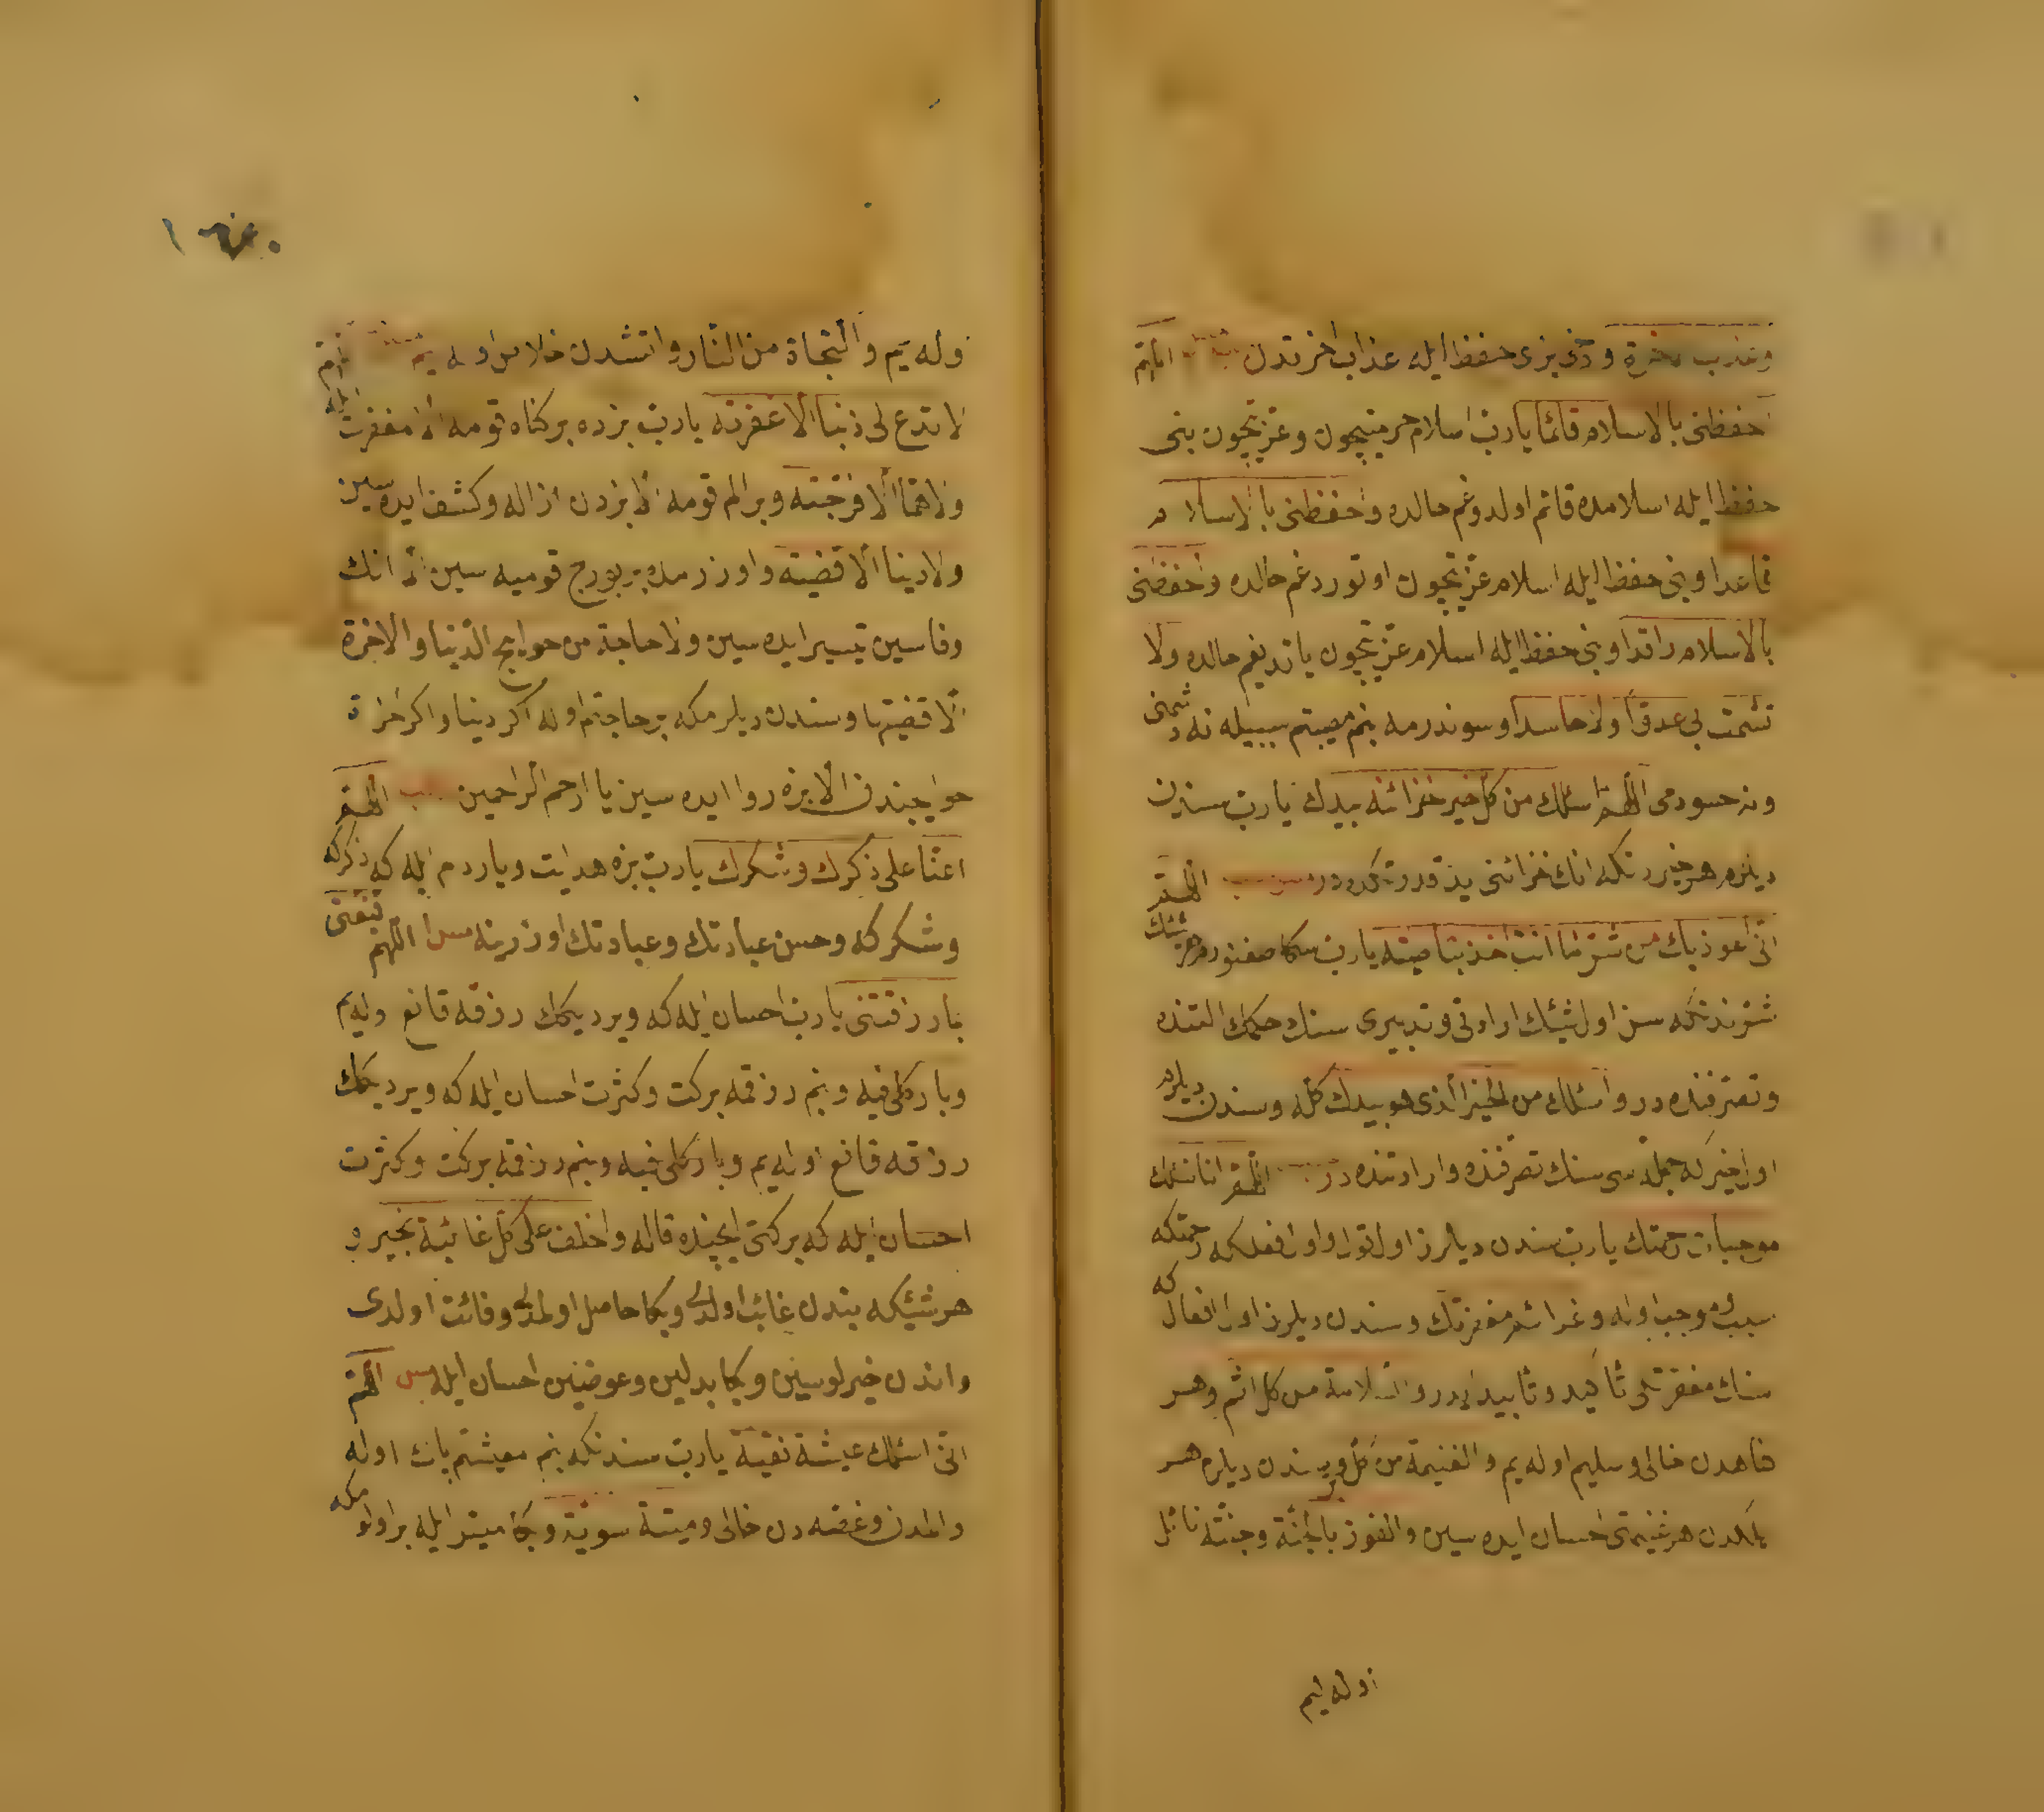 وعذاب الاخرة ودخی بزی حفظ ایله عذاب اخرتدن اللهم
احفظنی بالاسلام قائما یارب اسلام حرمتیچون وعزتیچون بنی
حفظ ایله اسلامده قائم اولدوغم حالده واحفظنی بالاسلام
قاعدا وبنی حفظ ایله اسلام عزتیچون اوتوردغم حالده واحفظنی
بالاسلام راقدا وبنی حفظ ایله اسلام عزتیچون یاتدیغم حالده ولا
تشمت بی عدوا ولا حاسدا وسوندرمه بنم مصیبتم سببیله نه دشمنی
ونه حسودمی اللهم اسئلك من كل خیر خزائنه بیدك یارب سندن
دیلرم هر خیردنكه انك خزائنی ید قدرتكده در اللهم
انی اعوذبك من شر ما انت اخذ بناصیته یارب سكا صغنورم هر شئك
شرندنكه سن اول شیئك ارادتی وتدبیری سنك حكمك التنده
وتصرفنده در واسئلك من الخیر الذی هو بیدك كله وسندن دیلرم
اول خیركه جمله سی سنك تصرفنده وارادتنده در اللهم انا نسئلك
موجبات رحمتك یارب سندن دیلرز اول قول واول افعلكه رحمتكه
سبب وموجب اوله وعزائم مغفرتك وسندن دیلرز اول افعال كه
سنك مغفرتكی تأكید وتأیید ایدر والسلامة من كل اثم وهر
كناهدن خالی وسلیم اوله یم والغنیمة من كل بر وسندن دیلرم هر
ایلكدن هر غنیمتی احسان ایده سین والفوز بالجنة وجنته نائل
اوله ایم
اوله یم والنجاة من النار واتشدن خلاص اوله یم اللهم
لا تدع لی ذنبا الا غفرته یارب بزده بر كناه قومه الا مغفرت ایله
ولا هما الا فرجته وبر الم قومه الا بزدن ازاله وكشف ایده سین
ولا دینا الا قضیته واوزرمده بر بورج قومیه سین الا انك
وفاسین تیسیر ایده سین ولا حاجة من حوایج الدنیا والاخرة
الا قضیتها وسندن دیلرمكه بر حاجتم اوله اكر دنیا واكر اخرة
حوایجندن الا بزه روا ایده سین یا ارحم الراحمین اللهم
اعنا علی ذكرك وشكرك یارب بزه هدایت ویاردم ایله كه ذكركه
وشكركه وحسن عبادتك وعبادتك اوزرینه اللهم قنعنی
بما رزقتنی یارب احسان ایله كه ویردیكك رزقه قانع اولیم
وبارك لی فیه وبنم رزقمه بركت وكثرت احسان ایله كه ویردیكك
رزقه قانع اوله یم وبارك لی فیه وبنم رزقمه بركت وكثرت
احسان ایله كه بركتی ایچنده قاله واخلف علی كل غائبة بخیر و
هر شیئكه بندن غائب اولدی وبكا حاصل اولمدی وفائت اولدی
واندن خیرلوسین وبكا بدلین وعوضین احسان ایله اللهم
انی اسئلك عیشة نقیة یارب سندنكه بنم معیشتم پاك اوله
والمدن وغصه دن خالی ومیتة سویة وبكا میسر ایله بر اولومكه